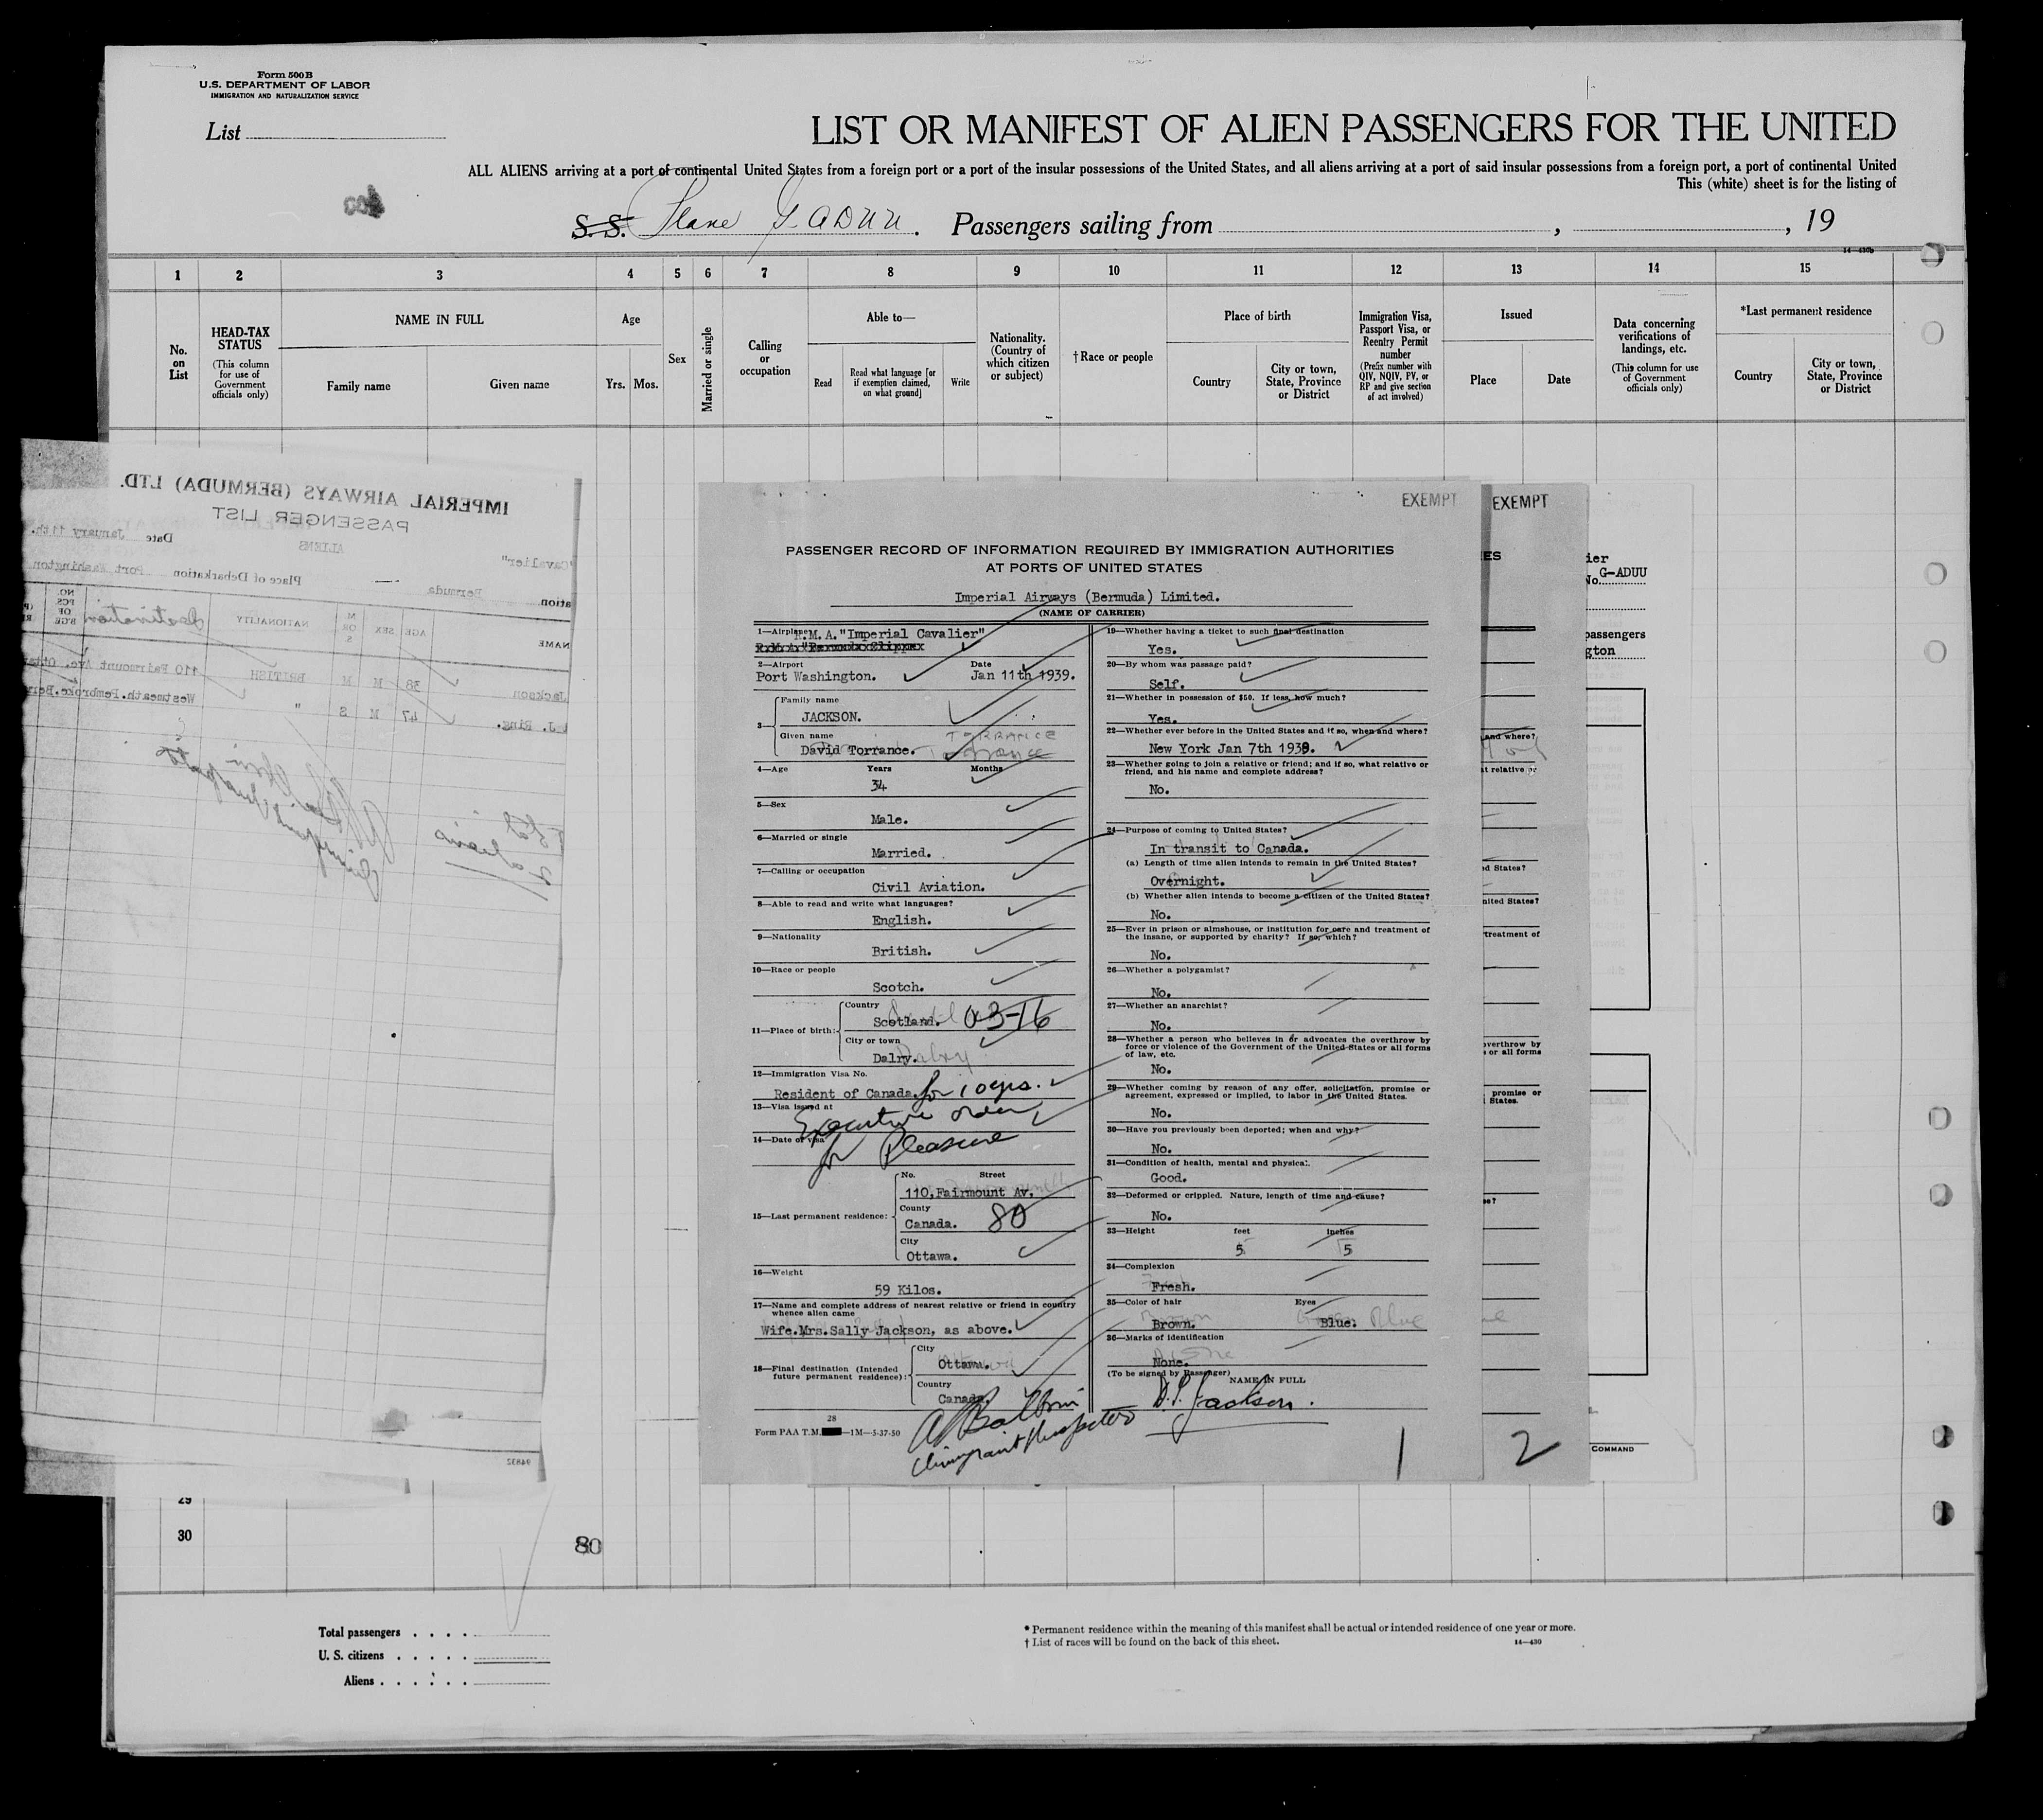 Form 500 B
U.S. DEPARTMENT OF LABOR
IMMIGRATION AND NATURALIZATION SERVICE
List
LIST OR MANIFEST OF ALIEN PASSENGERS FOR THE UNITED
ALL ALIENS arriving at a port of continental United States from a foreign port or a port of the insular possessions of the United States, and all aliens arriving at a port of said insular possessions from a foreign port, a port of continental United
This (white) sheet is for the listing of
S.S. Plane G-ADUU. Passengers sailing from , , 19
14—430b
1 2 3 4 5 6 7 8 9 10 11 12 13 14 15
No. on List
HEAD-TAX STATUS
(This column for use of Government officials only)
NAME IN FULL
Family name
Given name
Age
Yrs. Mos.
Sex
Married or single
Calling or occupation
Able to—
Read
Read what language [or if exemption claimed, on what ground]
Write
Nationality. (Country of which citizen or subject)
†Race or people
Place of birth
Country
City or town, State, Province or District
Immigration Visa, Passport Visa, or Reentry Permit number
(Prefix number with QIV, NQIV, PV, or RP and give section of act involved)
Issued
Place
Date
Data concerning verifications of landings, etc.
(This column for use of Government officials only)
*Last permanent residence
Country
City or town, State, Province or District
IMPERIAL AIRWAYS (BERMUDA) LTD.
PASSENGER LIST
ALIENS
Date January 11th.
"Cavalier"
Place of Debarkation Port Washington
ation Bermuda
NAME
AGE
SEX
M OR S
NATIONALITY
Destination
NO. PCS OF B'GE
Jackson 38 M M BRITISH 110 Fairmount Ave. Otta
J. Ring. 47 M S " Westmeath.Pembroke.Ber
2 aliens
94832
EXEMPT
EXEMPT
PASSENGER RECORD OF INFORMATION REQUIRED BY IMMIGRATION AUTHORITIES
AT PORTS OF UNITED STATES
Imperial Airways (Bermuda) Limited.
(NAME OF CARRIER)
1—Airplane R.M.A."Imperial Cavalier"
R.M.A."Bermuda Clipper
2—Airport Date
Port Washington. Jan 11th 1939.
3—
Family name
JACKSON.
Given name TORRANCE
David Torrance. Torrance
4—Age Years Months
34
5—Sex
Male.
6—Married or single
Married.
7—Calling or occupation
Civil Aviation.
8—Able to read and write what languages?
English.
9—Nationality
British.
10—Race or people
Scotch.
11—Place of birth:
Country
Scotland. 03-16
City or town
Dalry. Dalry
12—Immigration Visa No.
Resident of Canada. for 10 yrs.
13—Visa issued at
Executive order
14—Date of visa
for Pleasure
15—Last permanent residence:
No. Street
110,Fairmount Av.
County
Canada. 80
City
Ottawa.
16—Weight
59 Kilos.
17—Name and complete address of nearest relative or friend in country whence alien came
Wife.Mrs.Sally Jackson, as above.
18—Final destination (Intended future permanent residence):
City
Ottawa.
Country
Canada.
28
Form PAA T.M. —1M—5-37-50
Immigrant Inspector
19—Whether having a ticket to such final destination
Yes.
20—By whom was passage paid?
Self.
21—Whether in possession of $50. If less, how much?
Yes.
22—Whether ever before in the United States and if so, when and where?
New York Jan 7th 1939.
23—Whether going to join a relative or friend; and if so, what relative or friend, and his name and complete address?
No.
24—Purpose of coming to United States?
In transit to Canada.
(a) Length of time alien intends to remain in the United States?
Overnight.
(b) Whether alien intends to become a citizen of the United States?
No.
25—Ever in prison or almshouse, or institution for care and treatment of the insane, or supported by charity? If so, which?
No.
26—Whether a polygamist?
No.
27—Whether an anarchist?
No.
28—Whether a person who believes in or advocates the overthrow by force or violence of the Government of the United States or all forms of law, etc.
No.
29—Whether coming by reason of any offer, solicitation, promise or agreement, expressed or implied, to labor in the United States.
No.
30—Have you previously been deported; when and why?
No.
31—Condition of health, mental and physical.
Good.
32—Deformed or crippled. Nature, length of time and cause?
No.
33—Height feet inches
5 5
34—Complexion
Fresh.
35—Color of hair Eyes
Brown. Blue. Blue
36—Marks of identification
None.
(To be signed by Passenger) NAME IN FULL
D.T. Jackson.
1
2
ES
and where?
t relative or
ed States?
nited States?
treatment of
overthrow by
s or all forms
promise or
States.
se?
ier
No. G-ADUU
passengers
gton
COMMAND
29
30
80
Total passengers . . . .
U. S. citizens . . . . .
Aliens . . . . . .
* Permanent residence within the meaning of this manifest shall be actual or intended residence of one year or more.
† List of races will be found on the back of this sheet.
14—430